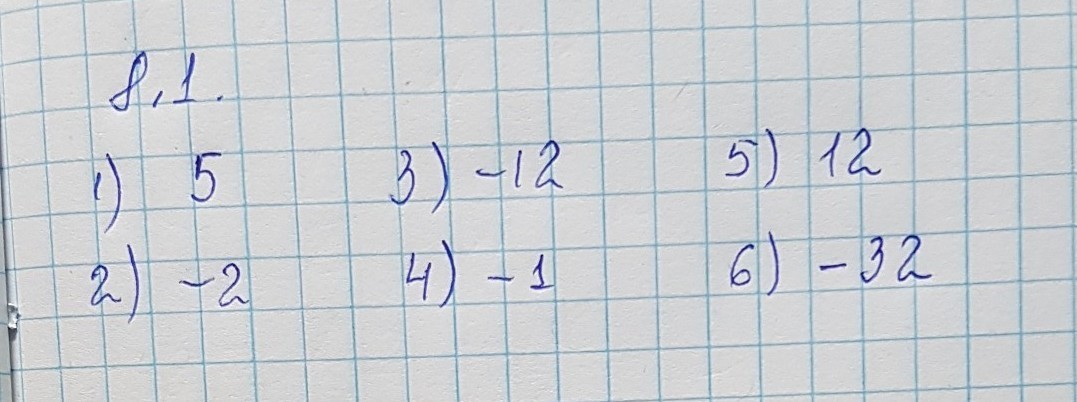 8.1.
1) 5 3) -12 5) 12
2) -2 4) -1 6) -32